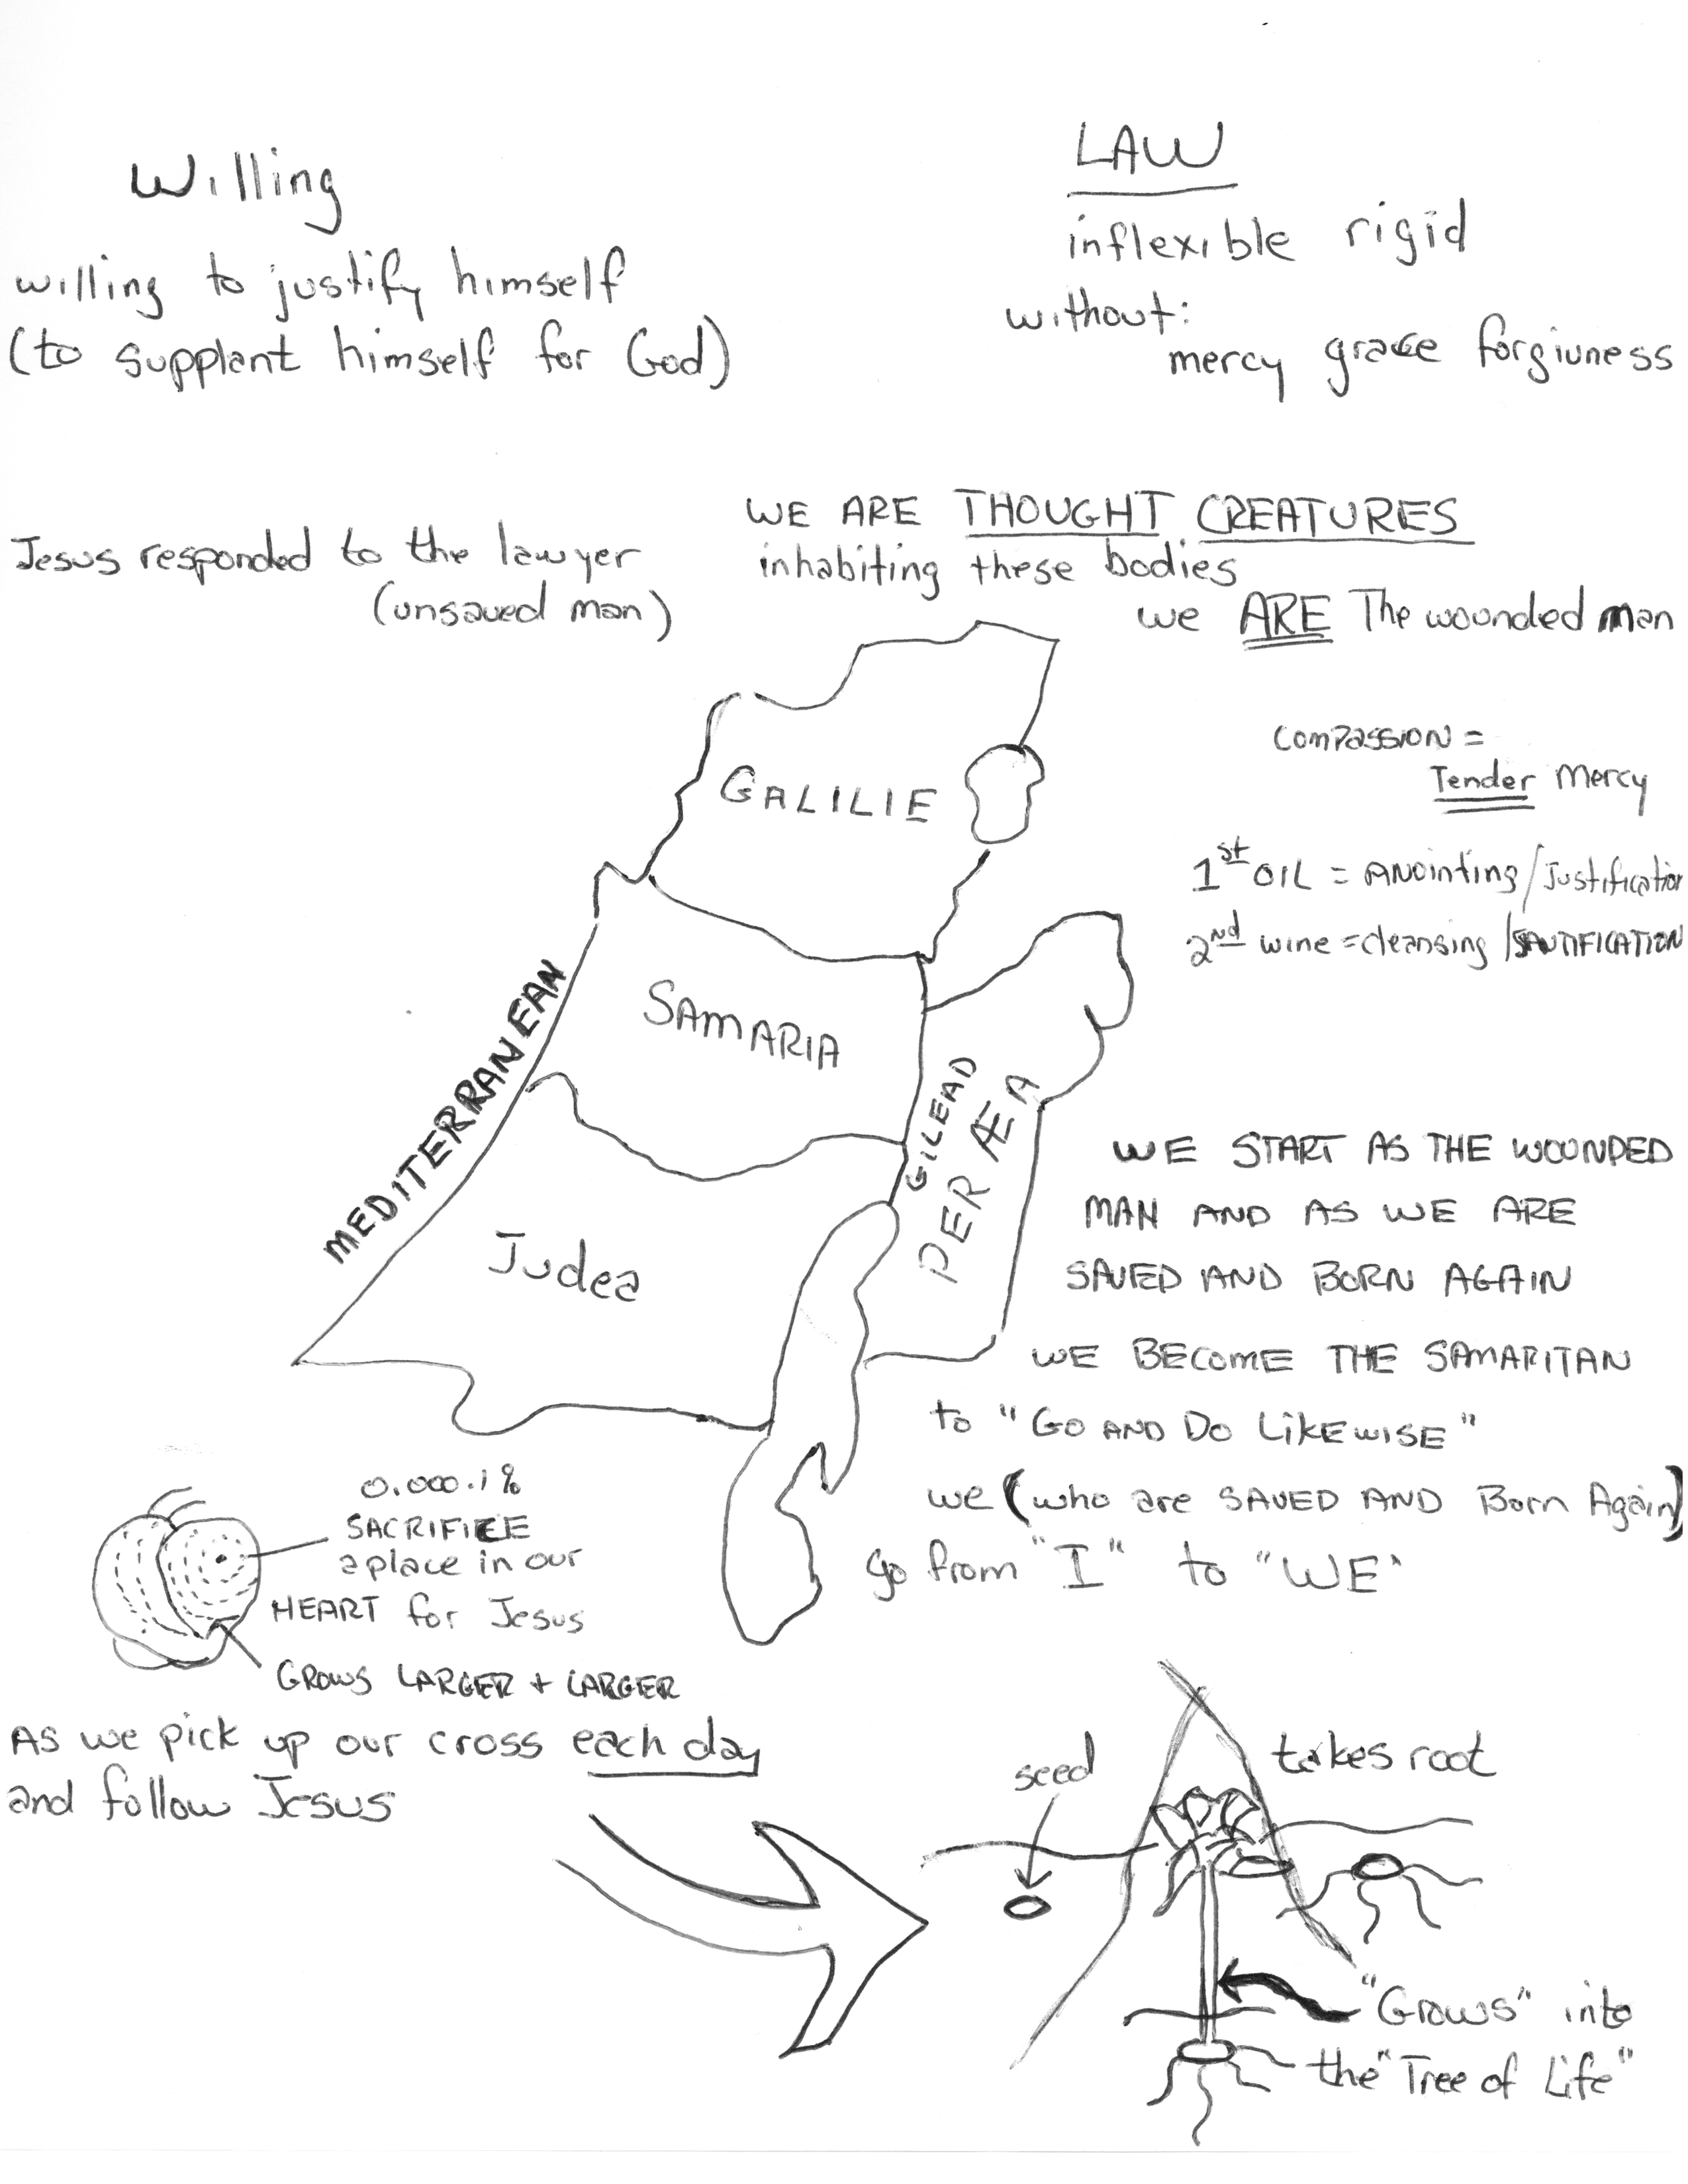 Willing
willing to justify himself
(to supplant himself for God)
LAW
inflexible rigid
without:
mercy grace forgiuness
Jesus responded to the lawyer
(unsaved man)
WE ARE THOUGHT CREATURES
inhabiting these bodies
we ARE The wounded man
COMPASSION =
Tender Mercy
1st OIL = ANointing/Justification
2nd wine = cleansing /SANTIFICATION
GALILIE
SAMARIA
MEDITERRANEAN
GILEAD
PERÆA
Judea
WE START AS THE WOUNDED
MAN AND AS WE ARE
SAVED AND BORN AGAIN
WE BECOME THE SAMARITAN
to "GO AND DO LIKEWISE"
we (who are SAVED AND Born Again)
go from "I" to "WE"
0.000.1%
SACRIFICE
a place in our
HEART for Jesus
GROWS LARGER + LARGER
AS we pick up our cross each day
and follow Jesus
seed
takes root
"Grows" into
the "Tree of Life"